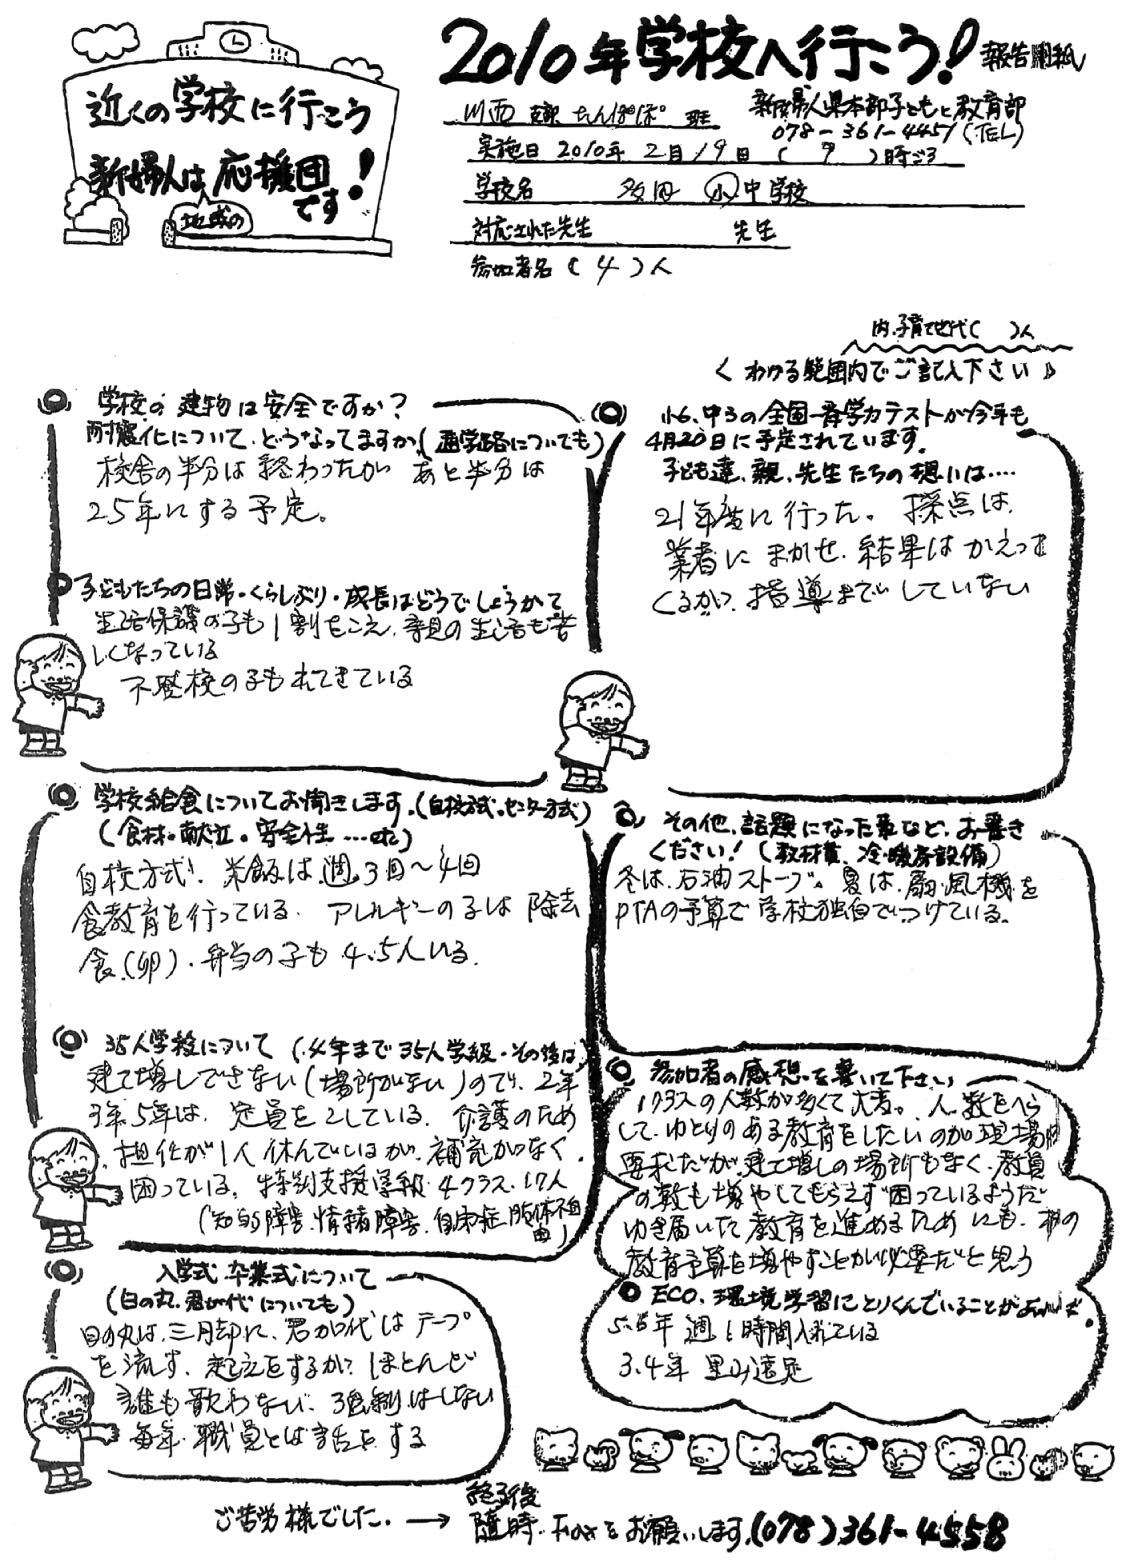 近くの学校に行こう
新婦人は応援団
です!
地域の
2010年学校へ行こう! 報告用紙
川西 支部 たんぽぽ 班
新婦人県本部子どもと教育部
078-361-4457(TEL)
実施日 2010年 2月 19日 ( 9 )時ごろ
学校名 多田 小 中学校
対応された先生 先生
参加者名 ( 4 )人
内、子育て世代( )人
< わかる範囲内でご記入下さい >
学校の 建物は安全ですか?
耐震化について、どうなってますか、(通学路についても)
校舎の半分は 終わったが あと半分は
25年にする予定。
子どもたちの日常・くらしぶり・成長はどうでしょうかて
生活保護の子も1割をこえ、親の生活も苦
しくなっている
不登校の子もでてきている
小6、中3の全国一斉学力テストが今年も
4月20日に予定されています。
子ども達、親、先生たちの想いは……
21年度に行った。採点は、
業者にまかせ、結果はかえって
くるが、指導までしていない
学校給食についてお聞きします。(自校方式・センター方式)
(食材・献立・安全性……etc)
自校方式、米飯は週3回〜4回
食教育を行っている、アレルギーの子は 除去
食(卵)、弁当の子も 4、5人いる。
その他、話題になった事など、お書き
ください!(教材費、冷・暖房設備)
冬は、石油ストーブ、夏は、扇風機を
PTAの予算で 学校独自でつけている。
35人学級について (4年まで35人学級・その後は)
建て増しできない(場所がない)ので、2年
3年 5年は、定員を 2している。介護のため
担任が1人 休んでいるが、補充がなく
困っている。特別支援学級 4クラス、17人
(知的障害、情緒障害、自閉症、肢体不自
由)
参加者の感想を書いて下さい
1クラスの人数が多くて大変。人数をへら
して、ゆとりのある教育をしたいのが現場の
要求だが、建て増しの場所もなく、教員
の数も増やしてもらえず困っているようだ
ゆき届いた教育を進めるためにも、
教育予算を増やすことが必要だと思う
入学式、卒業式について
(日の丸、君が代についても)
日の丸は、三月却に、君が代は テープ
を流す、起立をするが、ほとんど
誰も歌わない、強制はしない
毎年 職員とは話をする
ECO、環境学習にとりくんでいることがありますか
5、6年 週1時間入れている
3、4年 里山遠足
ご苦労様でした。→ 終了後
随時・Faxをお願いします。(078)361-4558